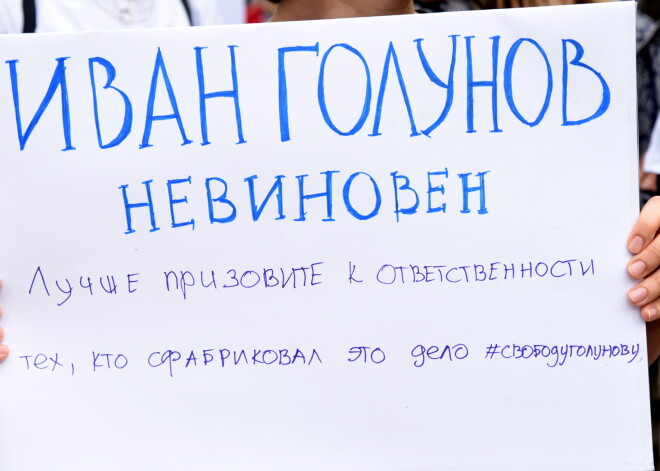 ИВАН ГОЛУНОВ
НЕВИНОВЕН
Лучше призовите к ответственности
тех, кто сфабриковал это дело #свободуголунову